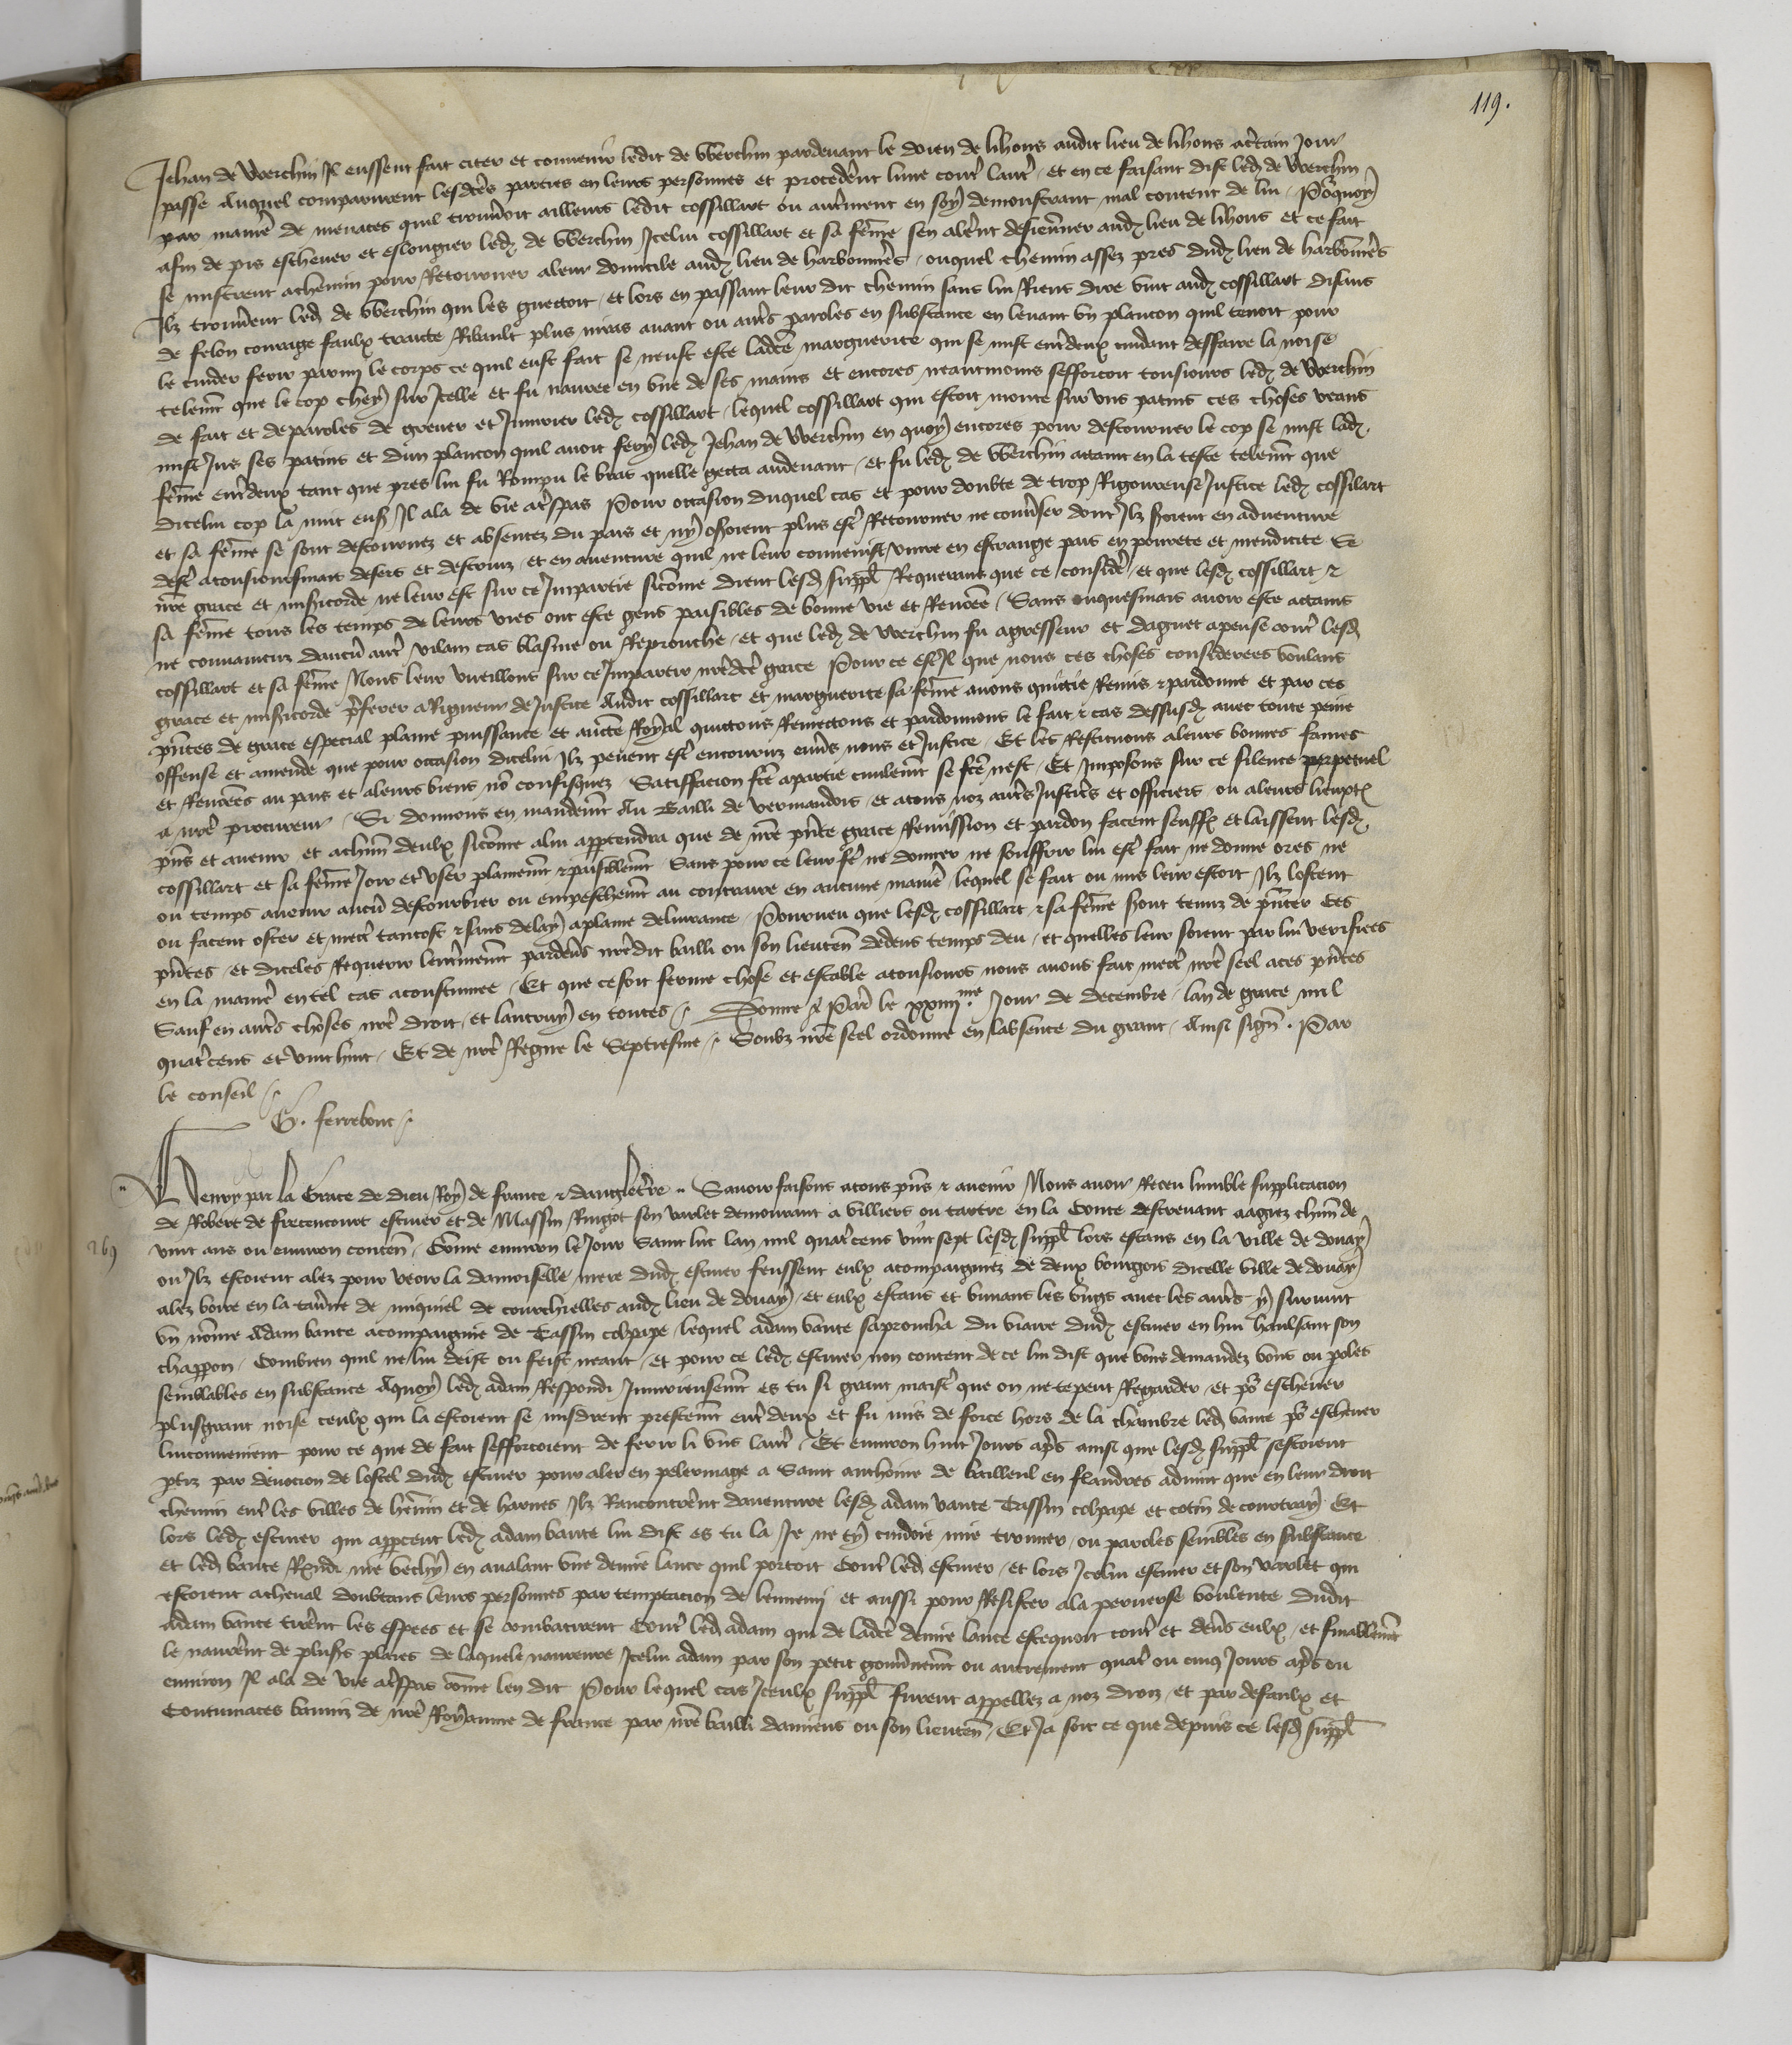 119.
Jehan de Werchin Il eussent fait citer et convenir ledit de Werchin pardevant le doien de lihons audit lieu de lihons a certain Jour
passe Auquel comparurent lesdictes parties en leurs personnes et procederent lune contre lautre / et en ce faisant dist ledit de Werchin
par maniere de menaces quil trouveroit ailleurs ledit Cossillart ou autrement en soy demonstrant mal content de lui / Pour quoy
afin de pis eschever et eslongier ledit de Werchin Icelui Cossillart et sa femme sen alerent desieuner audit lieu de lihons et ce fait
se mistrent a chemin pour Retourner a leur domicile audit lieu de harbonnieres / ouquel chemin assez pres dudit lieu de harbonnieres
Ilz trouverent ledit de Werchin qui les guettoit / et lors en passant leur dit chemin sans lui Riens dire vint audit Cossillart disans
de felon courage faulx traitre Ribault plus niras avant ou autres paroles en substance en levant un plancon quil tenoit pour
le cuider ferir parmi le corps ce quil eust fait se neust este ladicte marguerite qui se mist entredeux cuidant deffaire la noise
telement que le cop chey sur Icelle et fu navree en une de ses mains et encores neantmoins sefforcoit tousiours ledit de Werchin
de fait et de paroles de grever et Iniurier ledit Cossillart / lequel Cossillart qui estoit monte sur uns patins ces choses veans
mist Jus ses patins et dun plancon quil avoit fery ledit Jehan de Werchin en quoy encores pour destourner le cop se mist ladicte
femme entredeux tant que pres lui fu Rompu le bras quelle getta audevant / et fu ledit de Werchin attaint en la teste telement que
dicelui cop la nuit ens Il ala de vie a trespas Pour occasion duquel cas et pour doubte de trop Rigoureuse Justice ledit Cossilart
et sa femme se sont destournez et absentez du pais et ny oseroient plus estre Retourner ne converser dont Ilz seroient en adventure
destre a tousioursmais desers et destruiz / et en aventure quil ne leur convenist vivre en estrange pais en povrete et mendicite Se
nostre grace et misericorde ne leur est sur ce Impartie sicomme dient lesdits suppliants Requerans que ce considere / et que lesdits Cossillart &
sa femme tous les temps de leurs vies ont este gens paisibles de bonne vie et Renommee / Sans onquesmais avoir este attains
ne convaincuz daucun autre vilain cas blasme ou Reprouche / et que ledit de Werchin fu agresseur et daguet apense contre lesdits
Cossillart et sa femme Nous leur vueillons sur ce Impartir nostredicte grace Pour ce est Il que nous ces choses considerees voulans
grace et misericorde preferer a Rigueur de Justice Audit Cossillart et marguerite sa femme avons quictie Remis & pardonne et par ces
presentes de grace especial plaine puissance et auctorite Royal quictons Remectons et pardonnons le fait & cas dessusdit avec toute peine
offense et amende que pour occasion dicelui Ilz peuent estre encouruz envers nous et Justice / Et les Restituons a leurs bonnes fames
et Renommees au pais et a leurs biens non confisquez Satisfacion faicte a partie civilement se faicte nest / Et Imposons sur ce silence perpetuel
a nostre procureur / Si donnons en mandement Au Bailli de vermandois / et a tous noz autres Justiciers et officiers ou a leurs lieuxtenans
presens et avenir et a chacun deulx sicomme a lui appartendra que de nostre presente grace Remission et pardon facent seuffrent et laissent lesdits
Cossillart et sa femme Joir et User plainement & paisiblement Sans pour ce leur faire ne donner ne souffrir lui estre fait ne donne ores ne
ou temps avenir aucun destourbier ou empeschement au contraire en aucune maniere / lequel se fait ou mis leur estoit Ilz lostent
ou facent oster et mectre tantost & sans delay a plaine delivrance / Pourveu que lesdits Cossillart & sa femme seront tenuz de presenter ces
presentes / et diceles Requerir lenterinement pardevers nostredit bailli ou son lieutenant dedens temps deu / et quelles leur soient par lui verifiees
en la maniere en tel cas acoustumee / Et que ce soit ferme chose et estable a tousiours nous avons fait mectre nostre seel a ces presentes
Sauf en autres choses nostre droit / et lautruy en toutes / Donne a Paris le xxiiiime Jour de decembre / lan de grace mil
quatrecens et vint huit / Et de nostre Regne le Septiesme / Soubz nostre seel ordonne en labsence du grant / Ainsi signe . Par
le conseil /
G. ferrebouc /
Henry par la Grace de dieu Roy de france & dangleterre Savoir faisons a tous presens & avenir Nous avoir Receu lumble supplicacion
de Robert de frecencourt escuier et de Massin Ringot son varlet demourant a Villiers ou tartre en la Conte destrevant aagiez chacun de
vint ans ou environ contenant / Comme environ le Jour Saint luc lan mil quatrecens vint sept lesdits suppliants lors estans en la ville de douay
269
ou Ilz estoient alez pour veoir la damoiselle mere dudit escuier feussent eulx acompaigniez de deux bourgois dicelle ville de douay
alez boire en la taverne de miquiel de courchielles audit lieu de douay / et eulx estans et buvans les ungs avec les autres y survint
un nomme Adam vante acompaignie de Tassin colpape / lequel adam vante saproucha du viaire dudit escuier en lui haulsant son
chappon / Combien quil ne lui deist ou feist neant / et pour ce ledit escuier non content de ce lui dist que vous demandez vous ou paroles
semblables en substance Aquoy ledit adam Respondi Iniurieusement es tu si grant maistre que on ne te peut Regarder / et pour eschever
plusgrant noise ceulx qui la estoient se misdrent prestement entre deux et fu mis de force hors de la chambre ledit vante pour eschever
linconvenient pour ce que de fait sefforcoient de ferir li uns lautre / Et environ huit Jours apres ainsi que lesdits suppliants sestoient
partiz par devocion de lostel dudit escuier pour aler en pelerinage a Saint anthoine de Bailleul en flandres advint que en leur droit
chemin entre les villes de henin et de harnes Ilz Rancontrerent daventure lesdits adam vante Tassin colpape et cotin de courtray Et
lors ledit escuier qui appercut ledit adam vante lui dist es tu la Je ne ty cuidoie mie trouver / ou paroles semblables en substance
et ledit vante Respondi me vechy en avalant une demie lance quil portoit Contre ledit escuier / et lors Icelui escuier et son varlet qui
estoient a cheval doubtans leurs personnes par temptacion de lennemi et aussi pour Resister a la perverse voulente dudit
adam vante tirerent les espees et se combatirent Contre ledit adam qui de ladicte demie lance estequoit contre et devers eulx / et finablement
le navrerent de plusieurs plaies de laquele navreure Icelui adam par son petit gouvernement ou autrement quatre ou cinq Jours apres ou
environ Il ala de vie a trespas comme len dit Pour lequel cas Iceulx suppliants furent appellez a noz droiz / et par defaulx et
Contumaces banniz de nostre Royaume de france par nostre bailli damiens ou son lieutenant / Et Ja soit ce que depuis ce lesdits suppliants